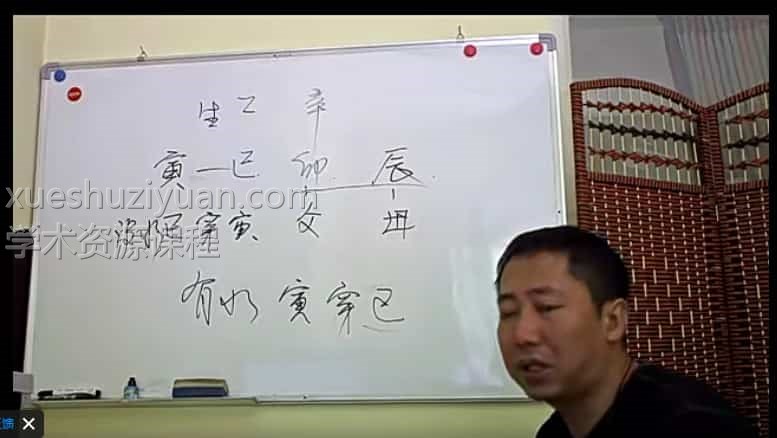 生 乙 辛
寅一巳 卯 辰
穿寅 父 母
有水 寅穿巳
xueshuziyuan.com
学术资源课程
反馈